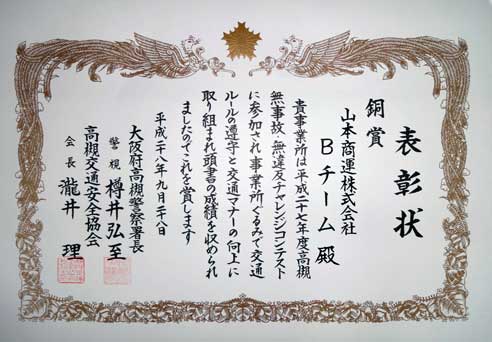 表彰状
銅賞
山本商運株式会社
Bチーム殿
貴事業所は平成二十七年度高槻
無事故・無違反チャレンジコンテスト
に参加され事業所ぐるみで交通
ルールの遵守と交通マナーの向上に
取り組まれ頭書の成績を収められ
ましたのでこれを賞します
平成二十八年九月二十八日
大阪府高槻警察署長
警視 樽井弘至
高槻交通安全協会
会長 瀧井理